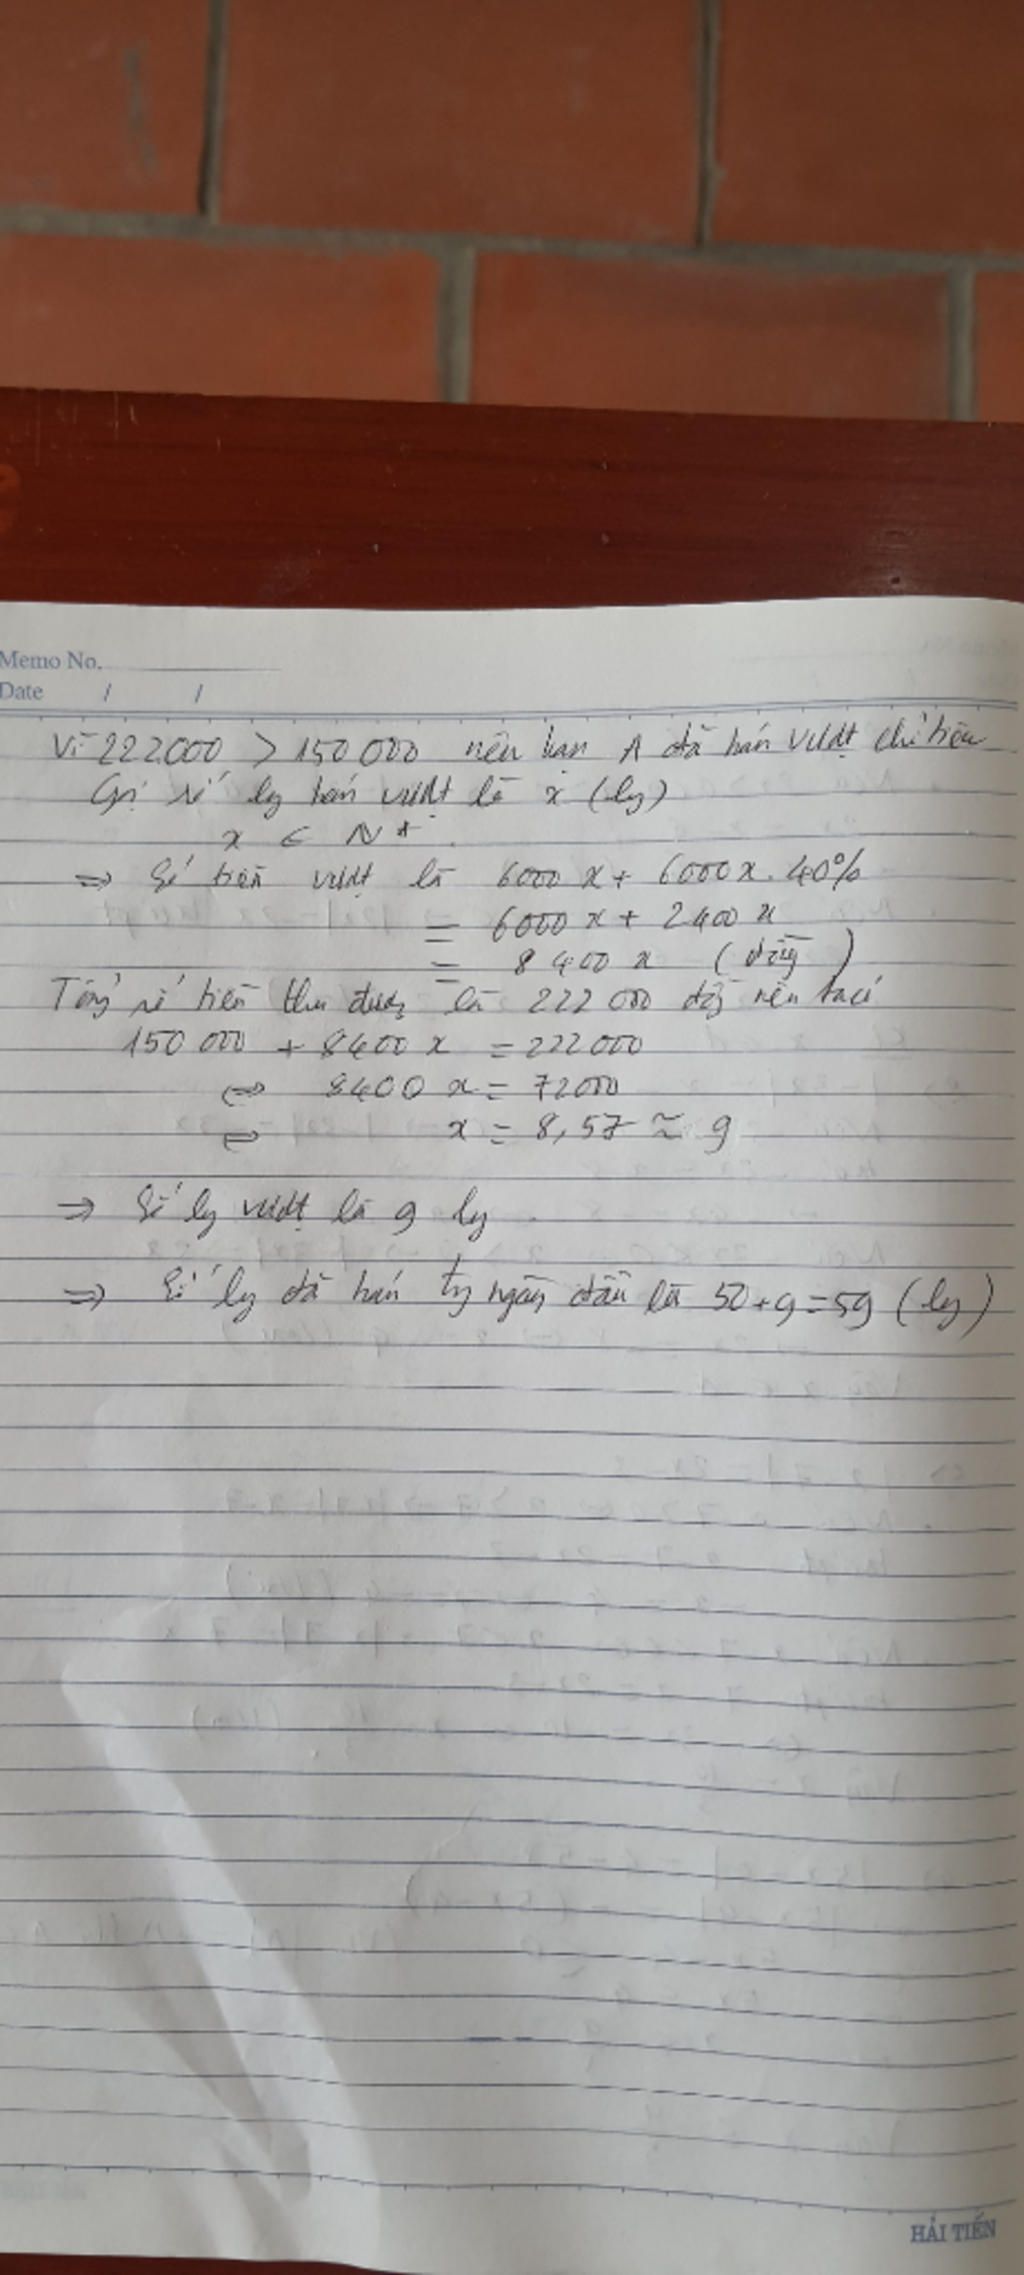 Memo No.
Date / /
Vì 222000 > 150 000 nên bạn A đã bán vượt chỉ tiêu
Gọi số ly bán vượt là x (ly)
x ∈ N*
=> Số tiền vượt là 6000 x + 6000 x . 40%
= 6000 x + 2400 x
= 8400 x (đồng)
Tổng số tiền thu được là 222 000 đồng nên ta có
150 000 + 8400 x = 222000
<=> 8400 x = 72000
<=> x = 8,57 ≈ 9
=> Số ly vượt là 9 ly
=> Số ly đã bán từ ngày đầu là 50 + 9 = 59 (ly)
HẢI TIẾN